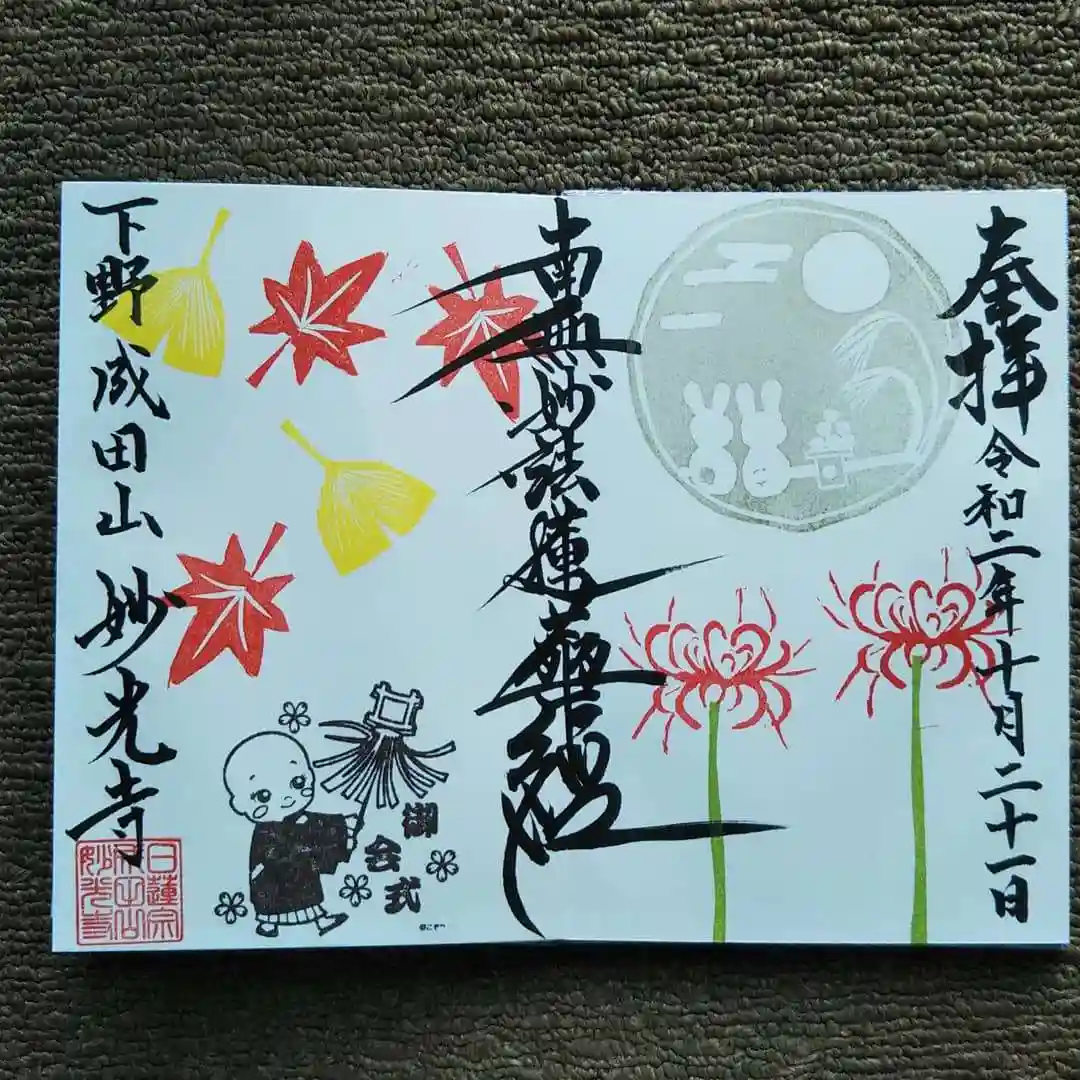 奉拝
令和二年十月二十一日
南無妙法蓮華経
下野成田山
妙光寺
御会式
日蓮宗